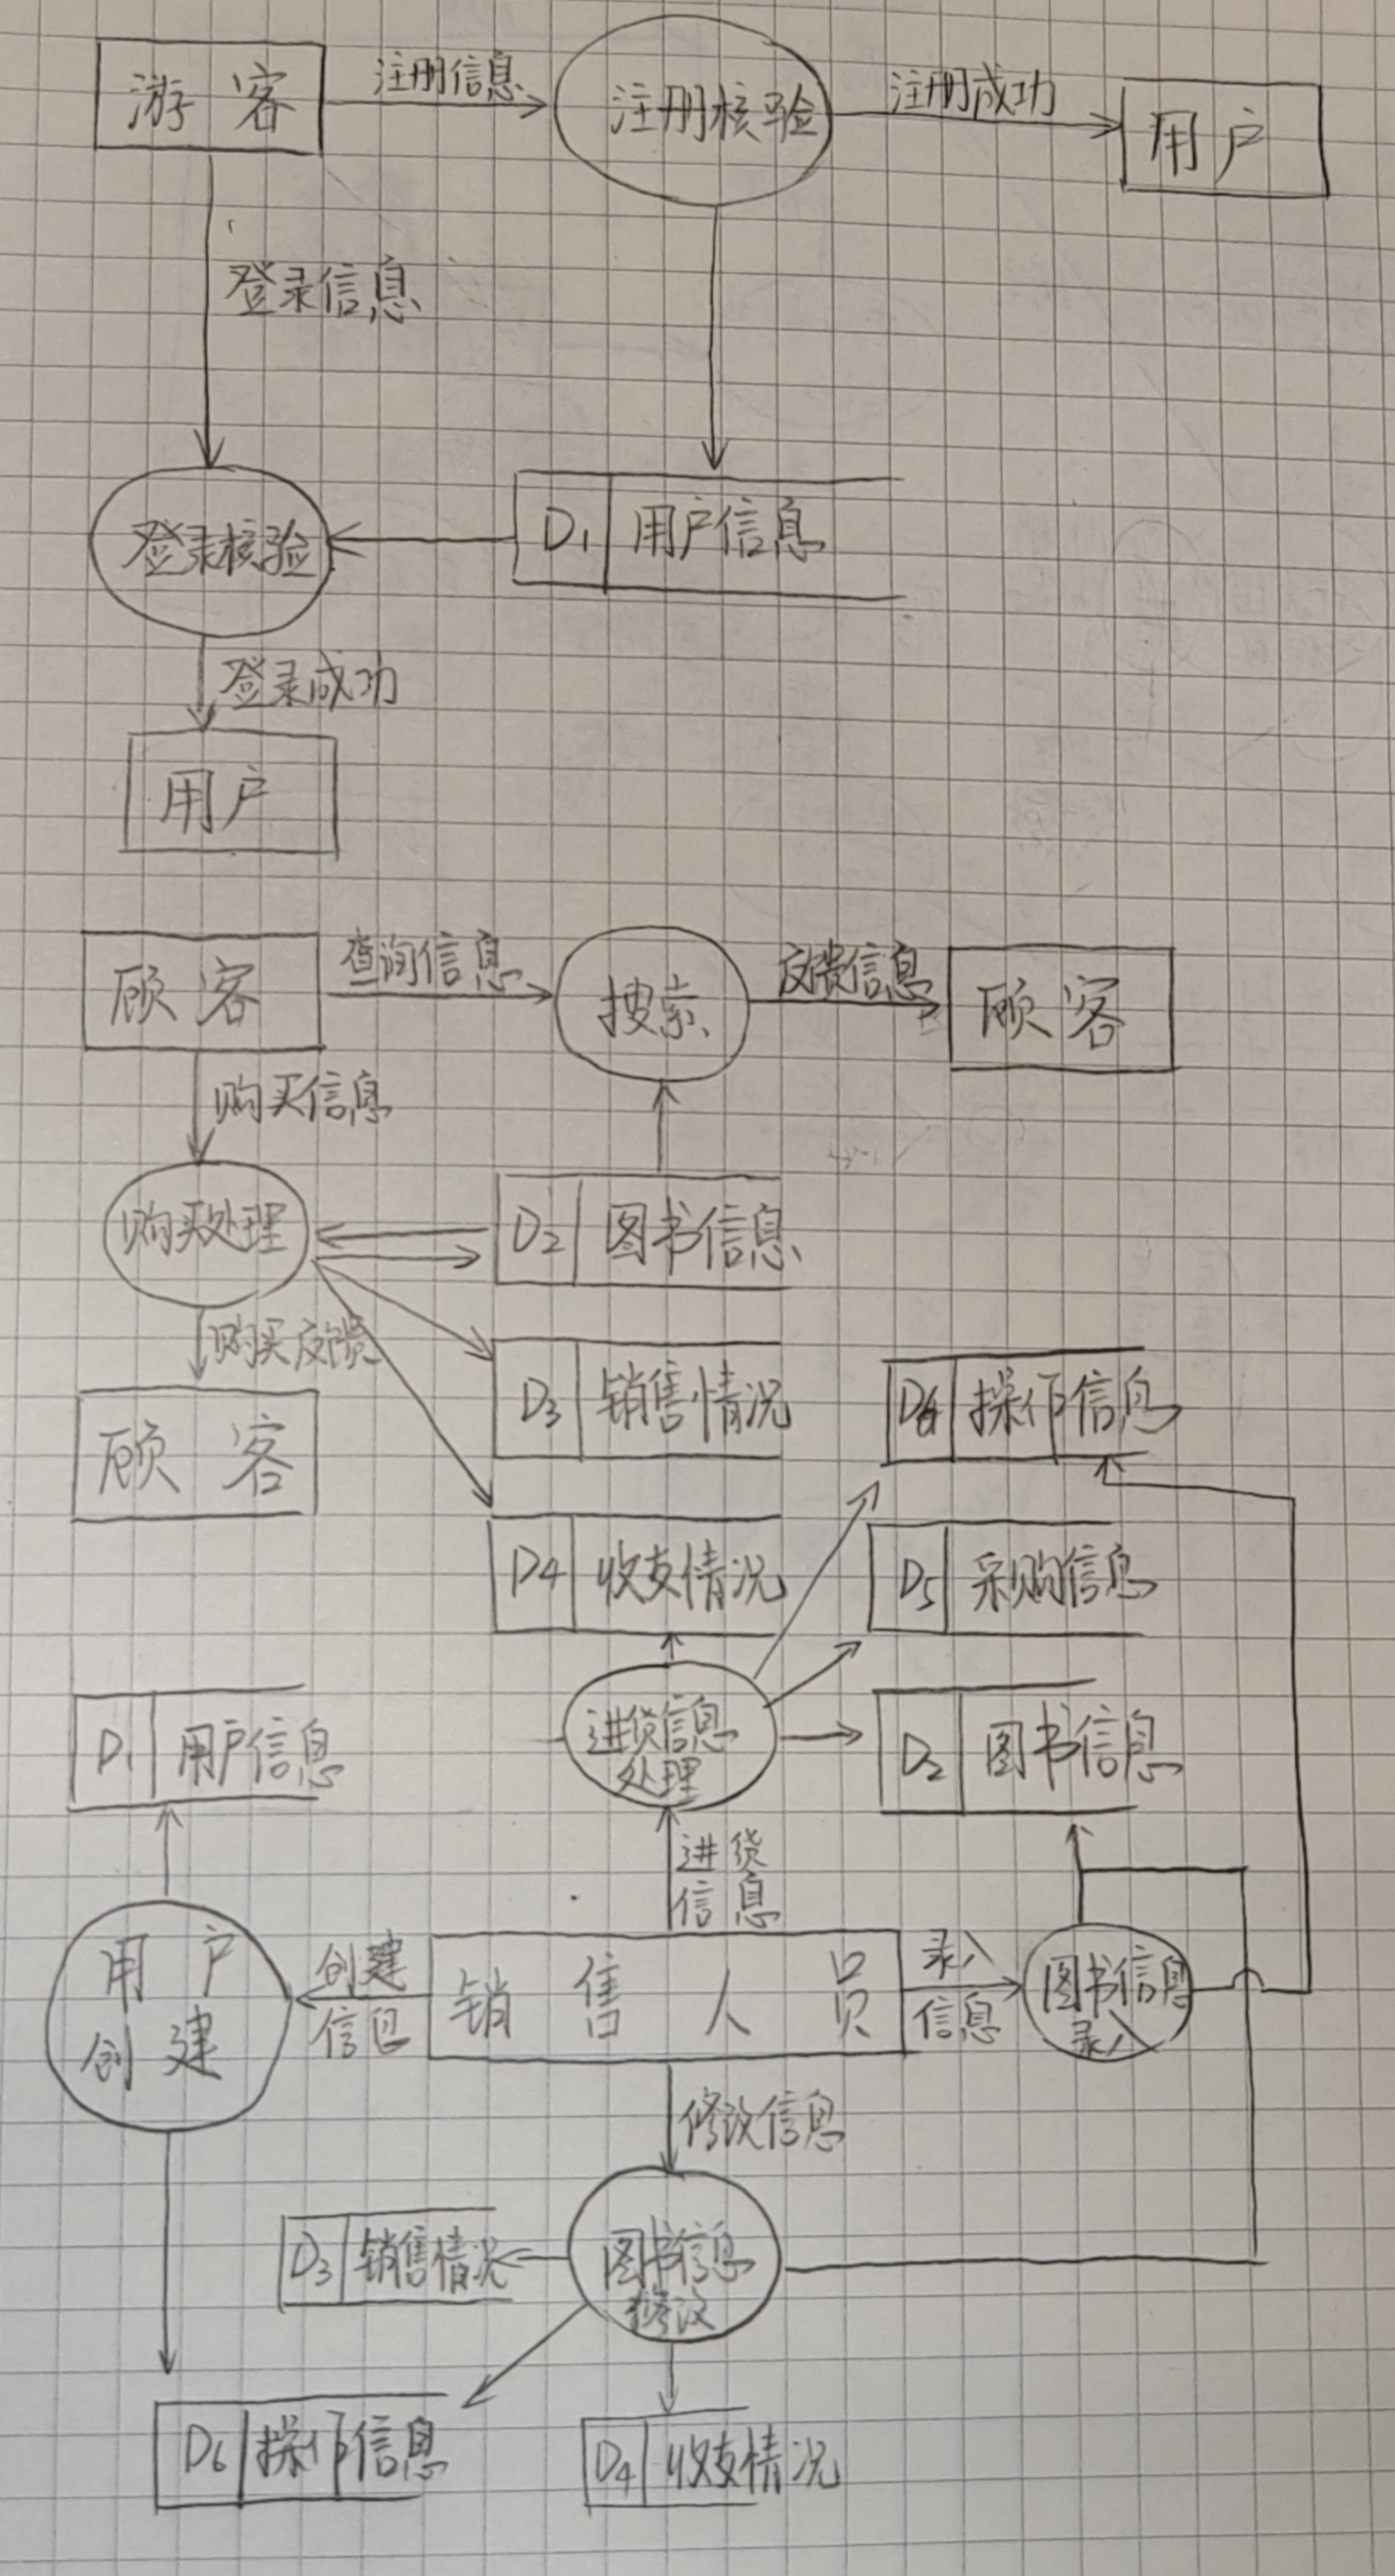 游客
注册信息
注册核验
注册成功
用户
登录信息
登录核验
D1 用户信息
登录成功
用户
顾客
查询信息
搜索
反馈信息
顾客
购买信息
购买处理
D2 图书信息
购买反馈
D3 销售情况
D6 操作信息
顾客
D4 收支情况
D5 采购信息
D1 用户信息
进货信息
处理
D2 图书信息
进货
信息
用户
创建
创建
信息
销售人员
录入
信息
图书信息
录入
修改信息
D3 销售情况
图书信息
修改
D6 操作信息
D4 收支情况